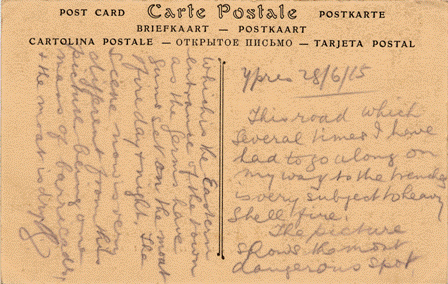 POST CARD Carte Postale POSTKARTE
BRIEFKAART — POSTKAART
CARTOLINA POSTALE — ОТКРЫТОЕ ПИСЬМО — TARJETA POSTAL
Ypres 28/6/15
This road which
several times I have
had to go along on
my way to the trenches
is very subject to heavy
shell fire.
The picture
shows the most
dangerous spot
which is the Eastern
entrance of the town
as the Germs have
guns set on the moat
fire day & night. The
scene now is very
different from this
picture being one
mass of barricades,
& the moat is dry